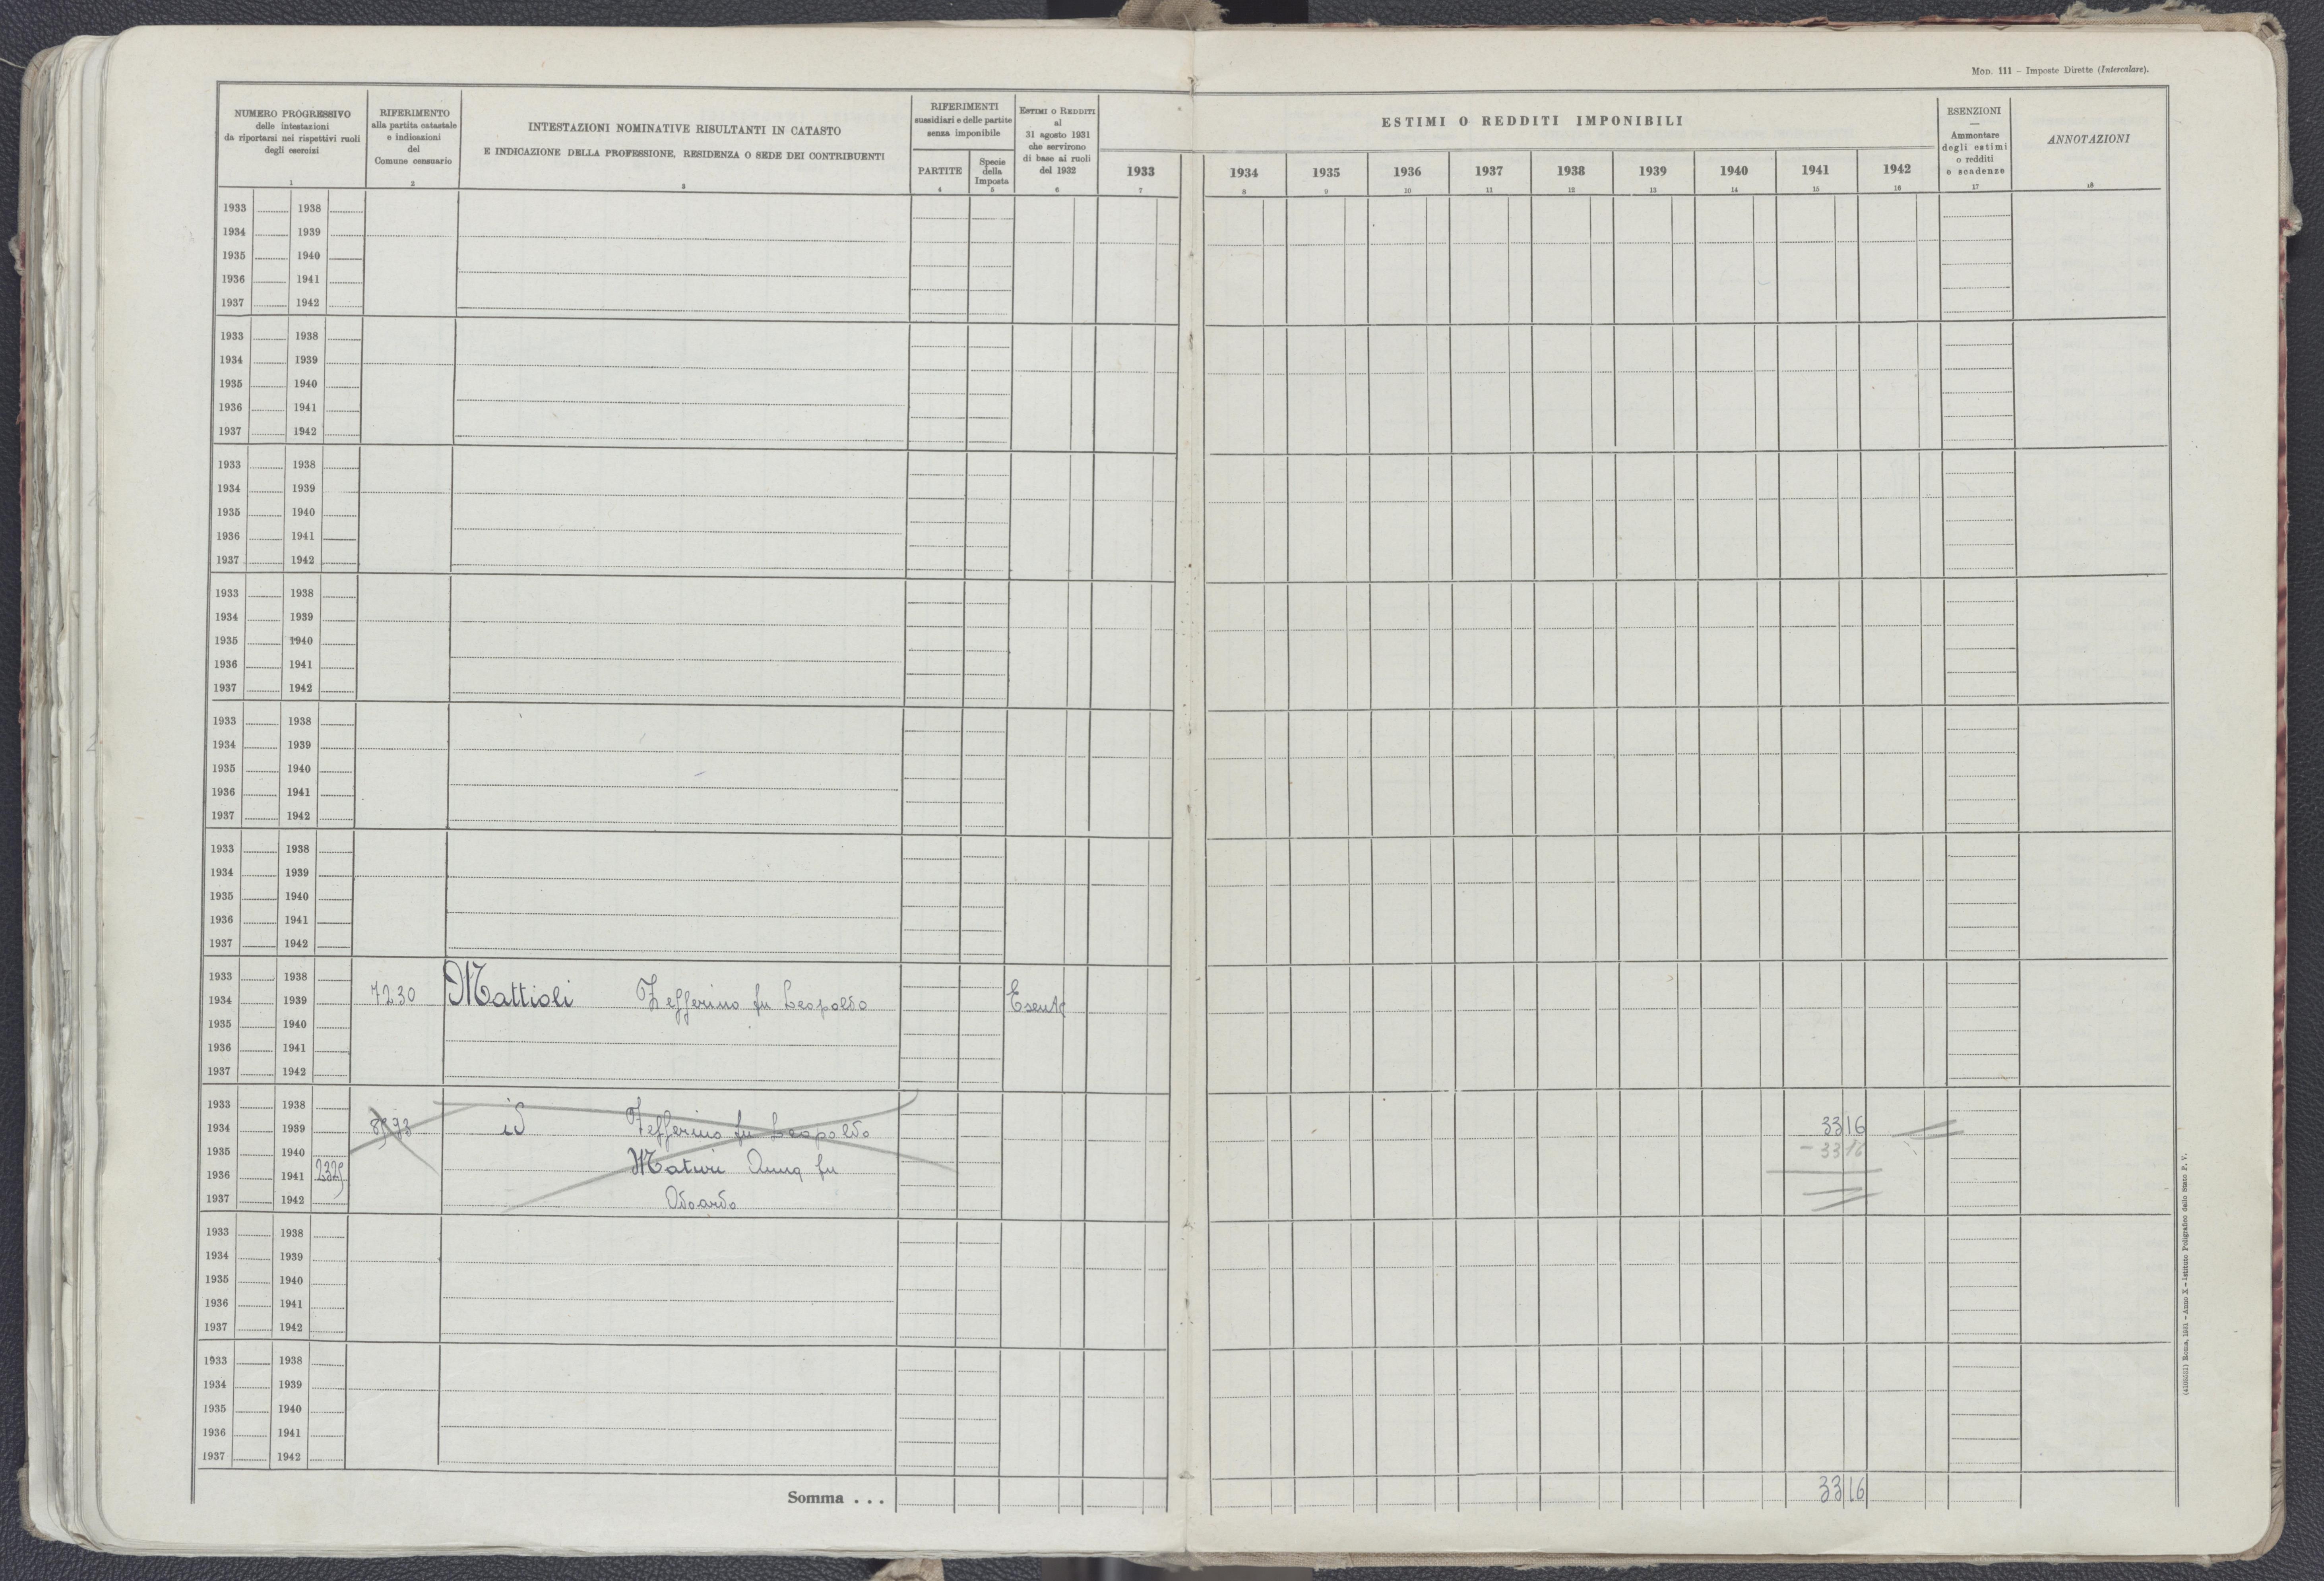 MOD. 111 - Imposte Dirette (Intercalare).
NUMERO PROGRESSIVO
delle intestazioni
da riportarsi nei rispettivi ruoli
degli esercizi
1
RIFERIMENTO
alla partita catastale
e indicazioni
del
Comune censuario
2
INTESTAZIONI NOMINATIVE RISULTANTI IN CATASTO
E INDICAZIONE DELLA PROFESSIONE, RESIDENZA O SEDE DEI CONTRIBUENTI
3
RIFERIMENTI
sussidiari e delle partite
senza imponibile
PARTITE
4
Specie
della
Imposta
5
ESTIMI O REDDITI
al
31 agosto 1931
che servirono
di base ai ruoli
del 1932
6
ESTIMI O REDDITI IMPONIBILI
1933 1934 1935 1936 1937 1938 1939 1940 1941 1942
7 8 9 10 11 12 13 14 15 16
ESENZIONI
—
Ammontare
degli estimi
o redditi
e scadenze
17
ANNOTAZIONI
18
1933 1938
1934 1939
1935 1940
1936 1941
1937 1942
1933 1938
1934 1939
1935 1940
1936 1941
1937 1942
1933 1938
1934 1939
1935 1940
1936 1941
1937 1942
1933 1938
1934 1939
1935 1940
1936 1941
1937 1942
1933 1938
1934 1939
1935 1940
1936 1941
1937 1942
1933 1938
1934 1939
1935 1940
1936 1941
1937 1942
1933 1938
1934 1939 7230 Mattioli Zefferino fu Leopoldo Esente
1935 1940
1936 1941
1937 1942
1933 1938
1934 1939 id Zefferino fu Leopoldo 33 16
1935 1940 - 33 16
1936 1941 2325 Maturi Anna fu
1937 1942 Odoardo
1933 1938
1934 1939
1935 1940
1936 1941
1937 1942
1933 1938
1934 1939
1935 1940
1936 1941
1937 1942
Somma . . . 33 16
(4105051) Roma, 1931 - Anno X - Istituto Poligrafico dello Stato P. V.